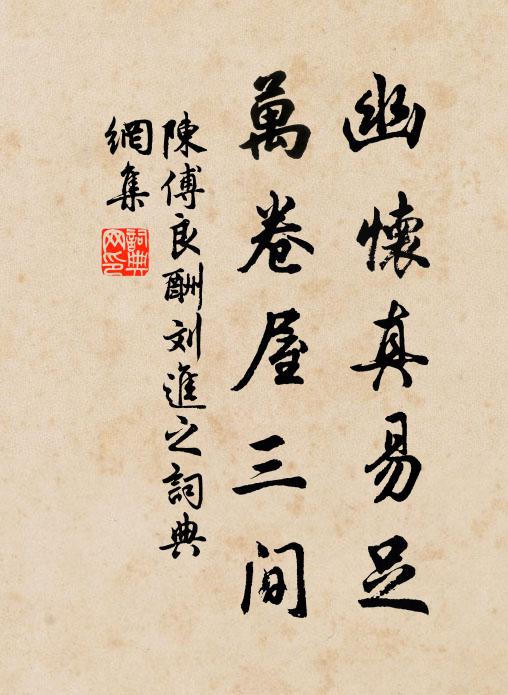 幽懷真易足
萬卷屋三间
陳傅良酬刘進之詞典
網集
詞典
网印